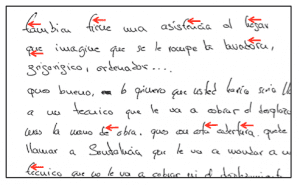 tambien tiene una asistencia al hogar
que imagine que se le rompe la lavadora,
frigorifico, ordenador....
pues bueno, lo primero que usted haria seria ll
a un tecnico que le va a cobrar el desplaza
mas la mano de obra, pues con esta cobertura, puede
llamar a Santalucia que le va a mandar a un
tecnico que no le va a cobrar ni el desplazamiento